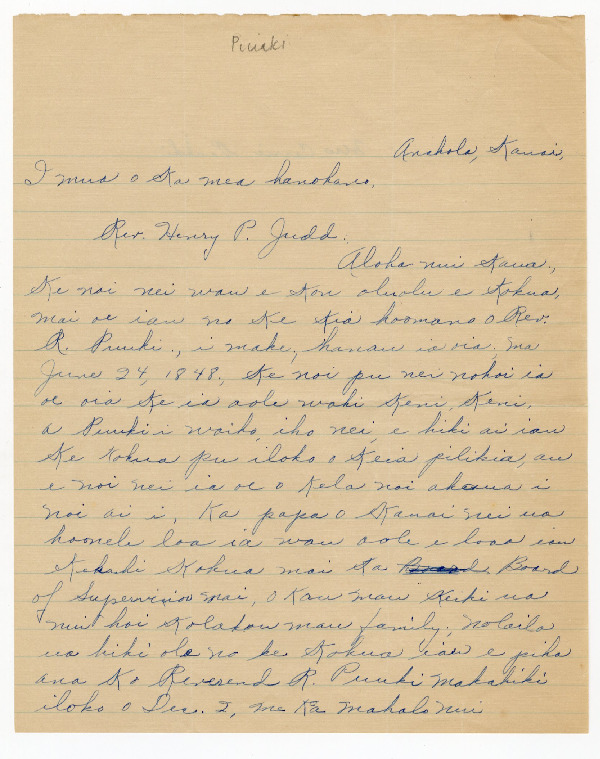 Piiuki
Anahola, Kauai,
I mua o ka mea hanohano,
Rev. Henry P. Judd.
Aloha nui kaua.,
Ke noi nei wau e kou oluolu e kokua,
mai oe iau no ke kia hoomano o Rev.
R. Puuki., i make, hanau ia oia, ma
June 24, 1848., Ke noi pu nei nohoi ia
oe oia ke ia aole wahi keni, keni,
a Puuki i waiho, iho nei, e hiki ai iau
ke kokua pu iloko o keia pilikia, au
e noi nei ia oe o kela noi akaua i
noi ai i, ka papa o Kauai nei ua
hoonele loa ia wau aole e loaa iau
kekahi kokua mai ka Board
of Supervision mai, o kau mau keiki ua
nui hoi kolakou mau family, nolaila
ua hiki ole no ke kokua iau e piha
ana ko Reverend R. Puuki makahiki
iloko o Dec. 2, me ka mahalo nui